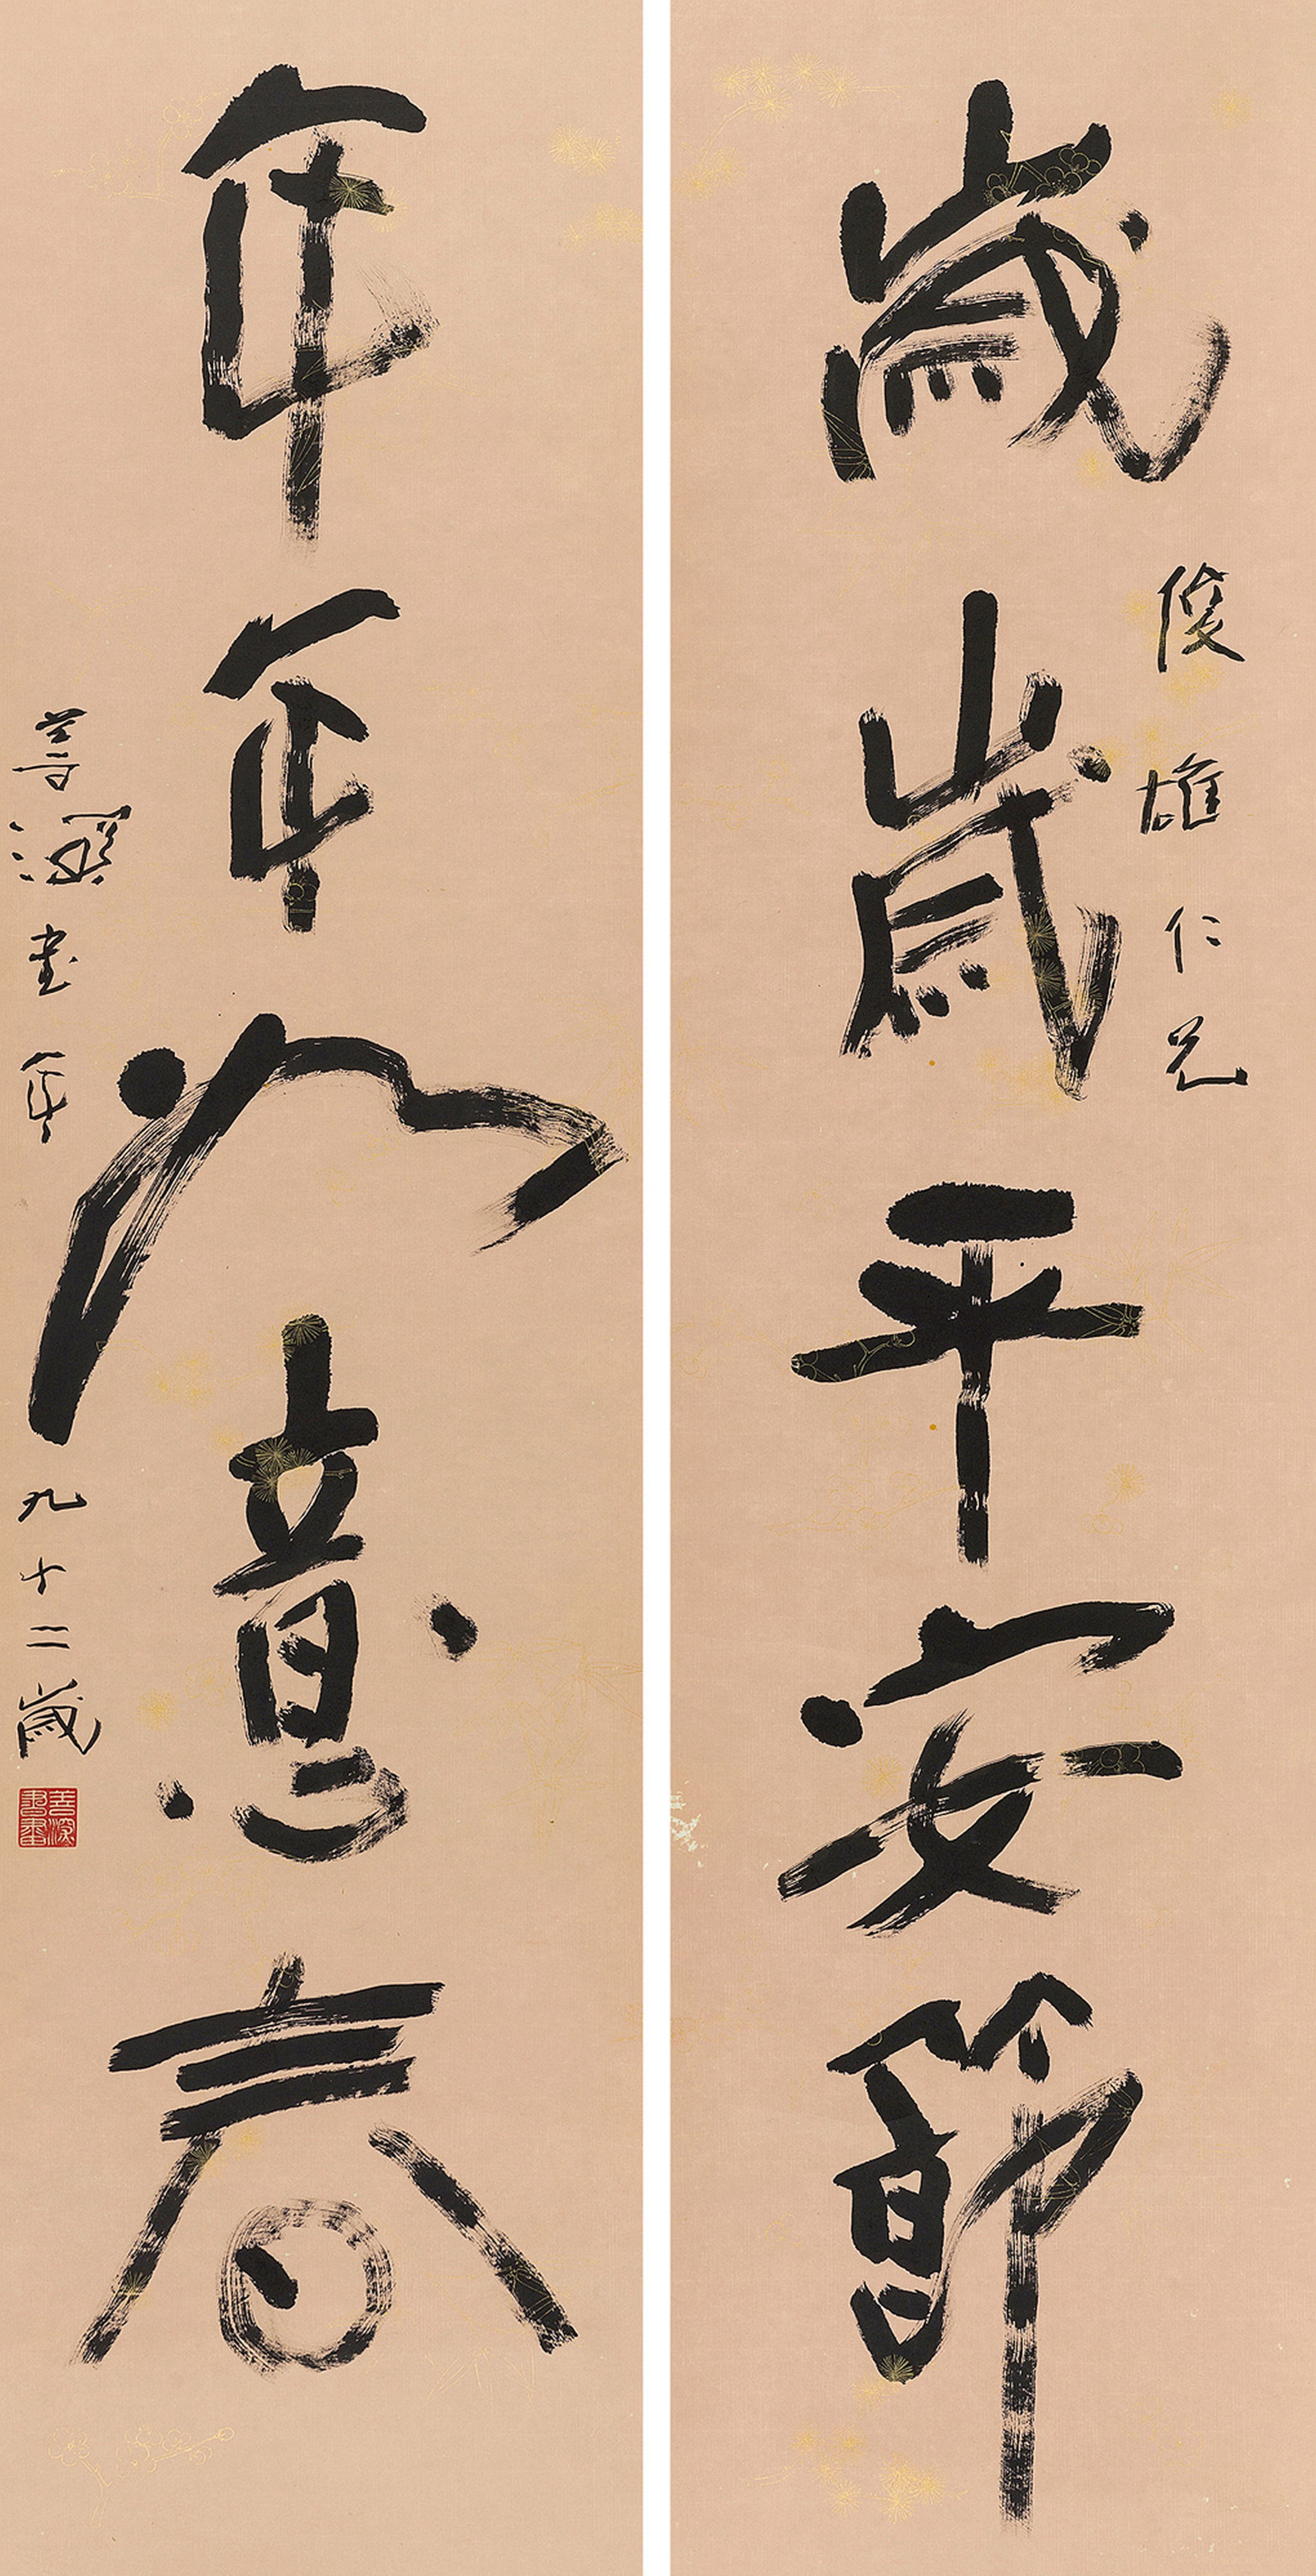 俊雄仁兄
歲歲平安節
年年如意春
善深書年九十二歲
善深書畫